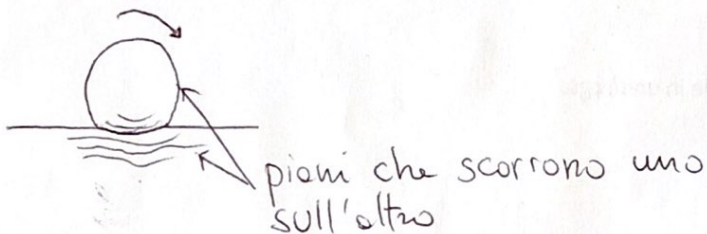 piani che scorrono uno
sull'altro